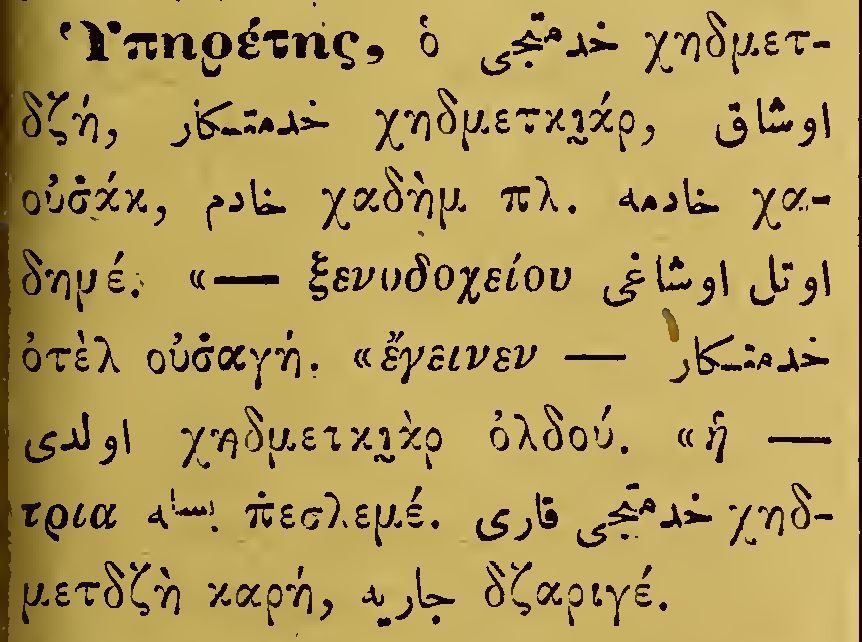 Ὑπηρέτης, ὁ خدمتجی χηδμετ-
δζή, خدمتكار χηδμετκι̰άρ, اوشاق
οὐσ̇άκ, خادم χαδὴμ πλ. خادمه χα-
δημέ. «— ξενοδοχείου اوتل اوشاغی
ὀτὲλ οὐσ̇αγή. «ἔγεινεν — خدمتكار
اولدی χηδμετκι̰ὰρ ὀλδού. «ἡ —
τρια بسلمه π̇εσλεμέ. خدمتجی قاری χηδ-
μετδζὴ καρή, جاریه δζαριγέ.